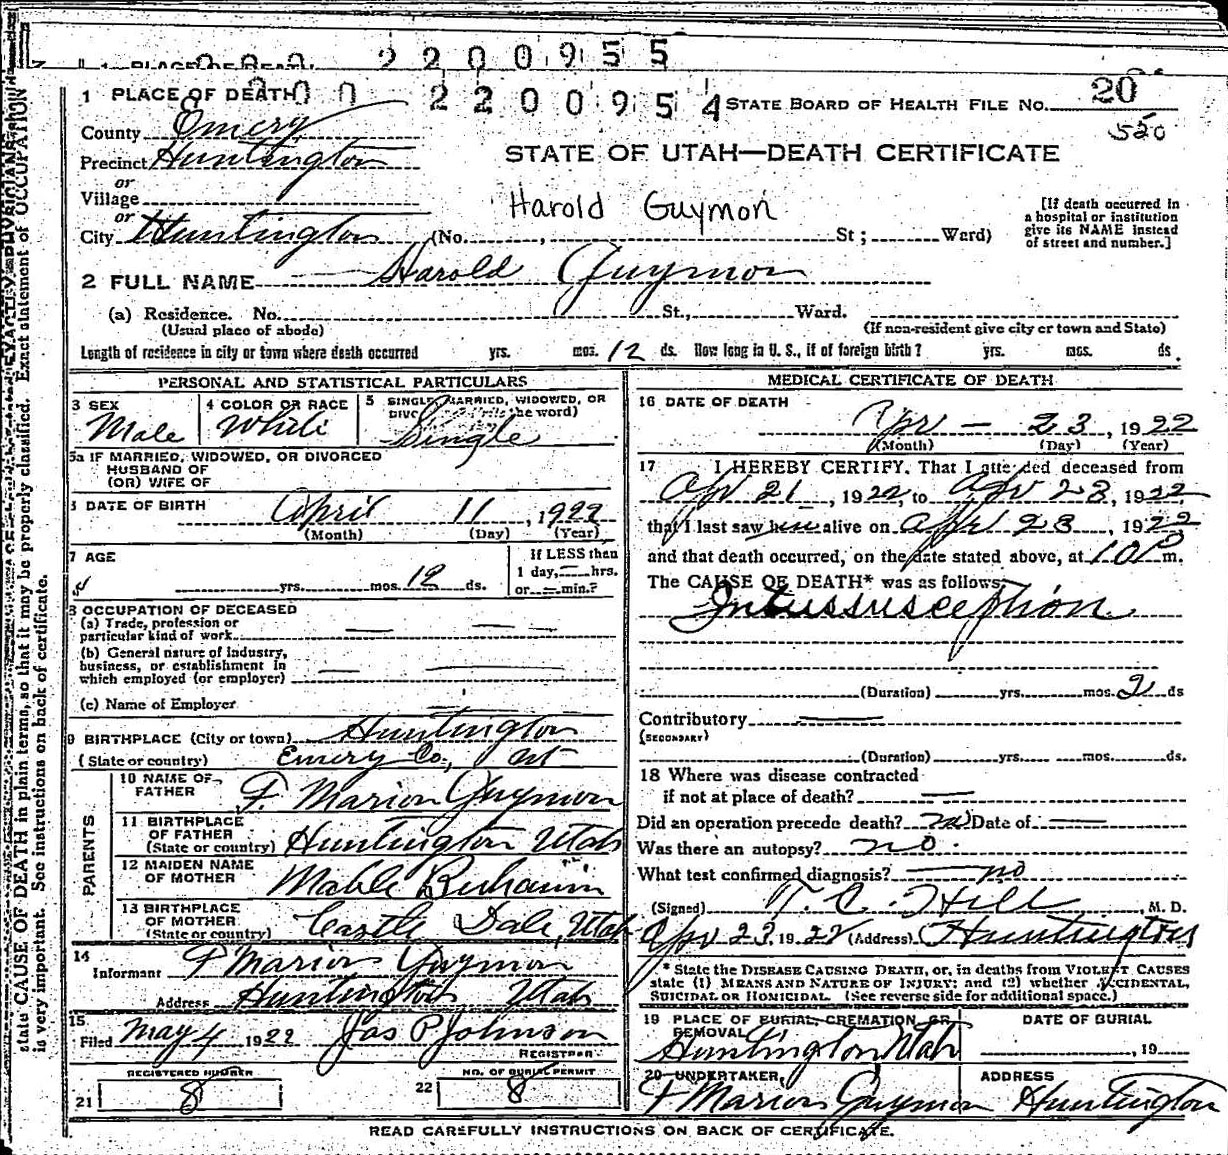 2200955
1 PLACE OF DEATH
00 2200954
STATE BOARD OF HEALTH FILE No. 20
520
County Emery
Precinct Huntington
STATE OF UTAH—DEATH CERTIFICATE
or
Village
Harold Guymon
or
City Huntington (No. , St; Ward)
[If death occurred in
a hospital or institution
give its NAME instead
of street and number.]
2 FULL NAME Harold Guymon
(a) Residence. No. St., Ward.
(Usual place of abode) (If non-resident give city or town and State)
Length of residence in city or town where death occurred yrs. mos. 12 ds. How long in U. S., if of foreign birth? yrs. mos. ds.
PERSONAL AND STATISTICAL PARTICULARS
3 SEX Male
4 COLOR OR RACE White
5 SINGLE, MARRIED, WIDOWED, OR
the word)
Single
5a IF MARRIED, WIDOWED, OR DIVORCED
HUSBAND OF
(OR) WIFE OF
DATE OF BIRTH April 11, 1922
(Month) (Day) (Year)
7 AGE
yrs. mos. 12 ds.
If LESS than
1 day, — hrs.
or — min.?
8 OCCUPATION OF DECEASED
(a) Trade, profession or
particular kind of work
(b) General nature of industry,
business, or establishment in
which employed (or employer)
(c) Name of Employer
9 BIRTHPLACE (City or town) Huntington
(State or country) Emery Co., Ut
PARENTS
10 NAME OF
FATHER F. Marion Guymon
11 BIRTHPLACE
OF FATHER
(State or country) Huntington Utah
12 MAIDEN NAME
OF MOTHER Mable
13 BIRTHPLACE
OF MOTHER
(State or country) Castle Dale, Utah
14
Informant F Marion Guymon
Address Huntington Utah
15
Filed May 4 1922 Jas P Johnson
REGISTRAR
REGISTERED NUMBER
21 8
NO. OF BURIAL PERMIT
22 8
MEDICAL CERTIFICATE OF DEATH
16 DATE OF DEATH
Apr — 23, 1922
(Month) (Day) (Year)
17 I HEREBY CERTIFY, That I attended deceased from
Apr 21, 1922, to Apr 23, 1922
that I last saw him alive on Apr 23, 1922
and that death occurred, on the date stated above, at m.
The CAUSE OF DEATH* was as follows:
Intussusception
(Duration) yrs. mos. 2 ds
Contributory
(SECONDARY)
(Duration) yrs. mos. ds.
18 Where was disease contracted
if not at place of death?
Did an operation precede death? no Date of
Was there an autopsy? no.
What test confirmed diagnosis? no
(Signed) T. C. Hill, M. D.
Apr 23, 1922 (Address) Huntington
* State the DISEASE CAUSING DEATH, or, in deaths from VIOLENT CAUSES
state (1) MEANS AND NATURE OF INJURY; and (2) whether ACCIDENTAL,
SUICIDAL OR HOMICIDAL. (See reverse side for additional space.)
19 PLACE OF BURIAL, CREMATION, OR
REMOVAL
Huntington Utah
DATE OF BURIAL
, 19
20 UNDERTAKER,
F Marion Guymon
ADDRESS
Huntington
READ CAREFULLY INSTRUCTIONS ON BACK OF CERTIFICATE.
state CAUSE OF DEATH in plain terms, so that it may be properly classified. Exact statement of OCCUPATION
is very important. See instructions on back of certificate.